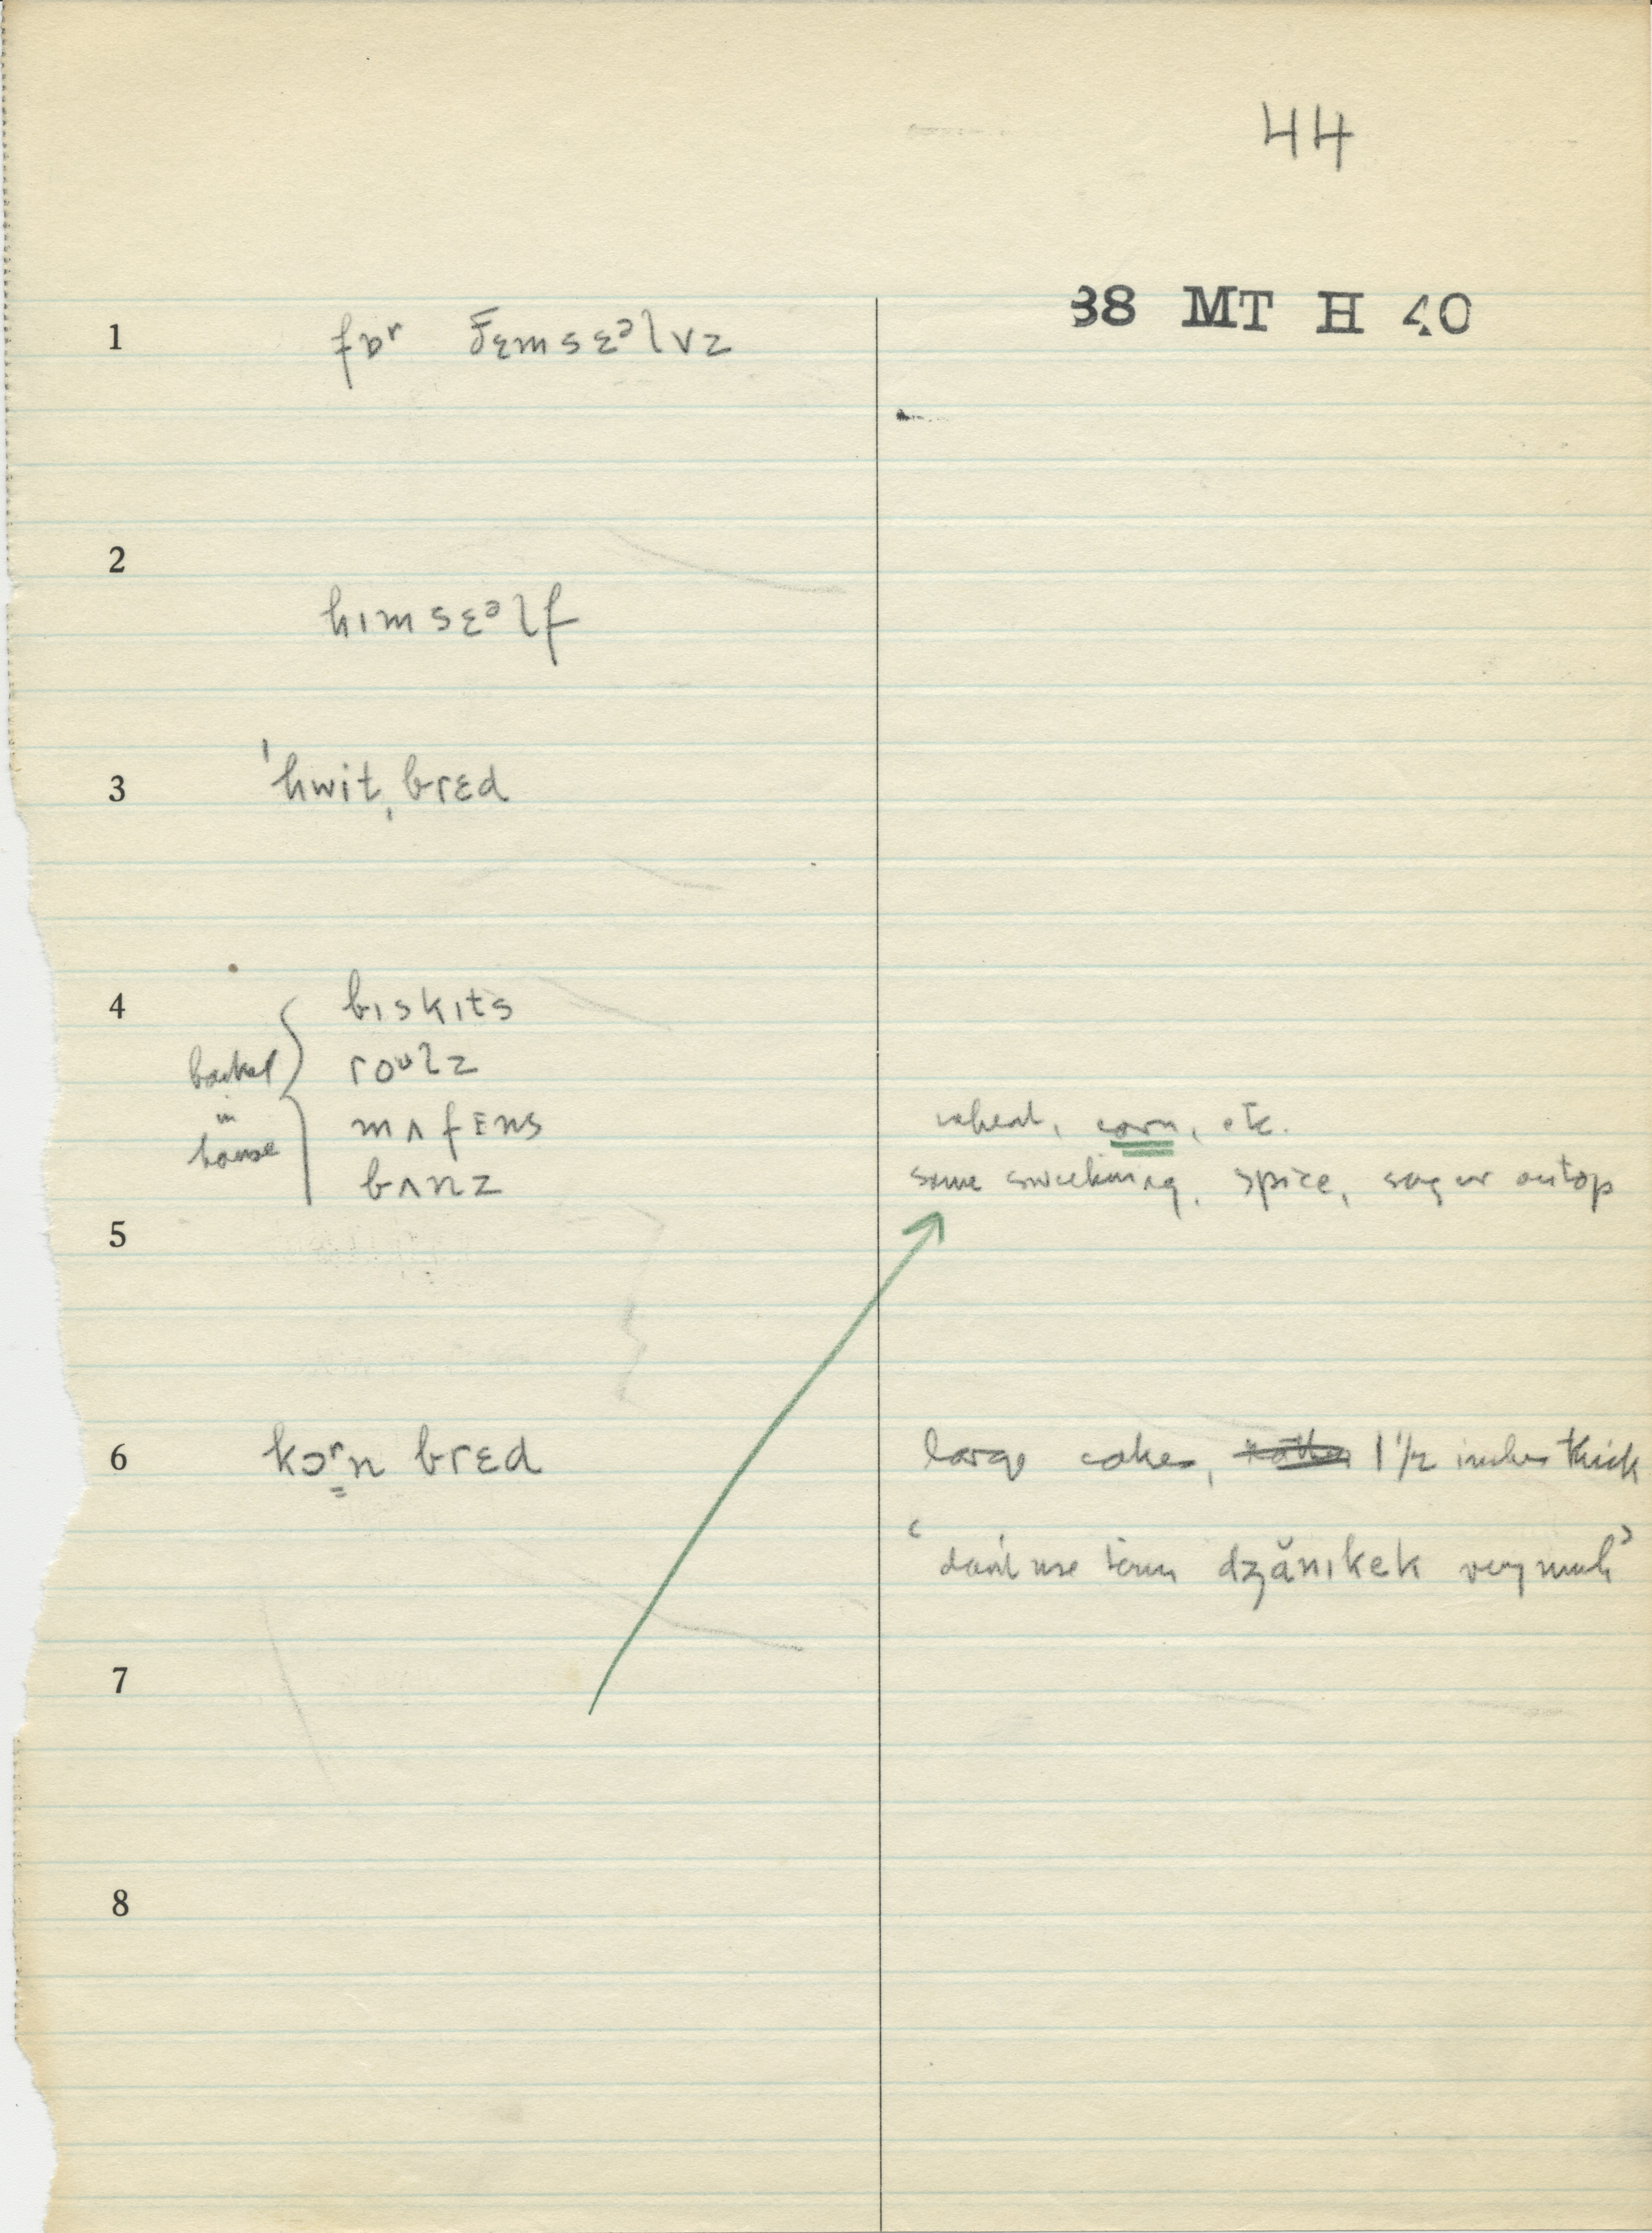 44
38 MT H 40
1 fɒʳ ðɛmsɛᵊlvz
2
hɪmsɛᵊlf
3 ˈhwit ˌbrɛd
4 bɪskɪts
baked in house
roᵘlz
mʌfɪns wheat, corn, etc.
bʌnz some sweetening, spice, sugar on top
5
6 kɔʳn brɛd large cake, 1 1/2 inches thick
‘don't use term dʒănɪkek very much’
7
8